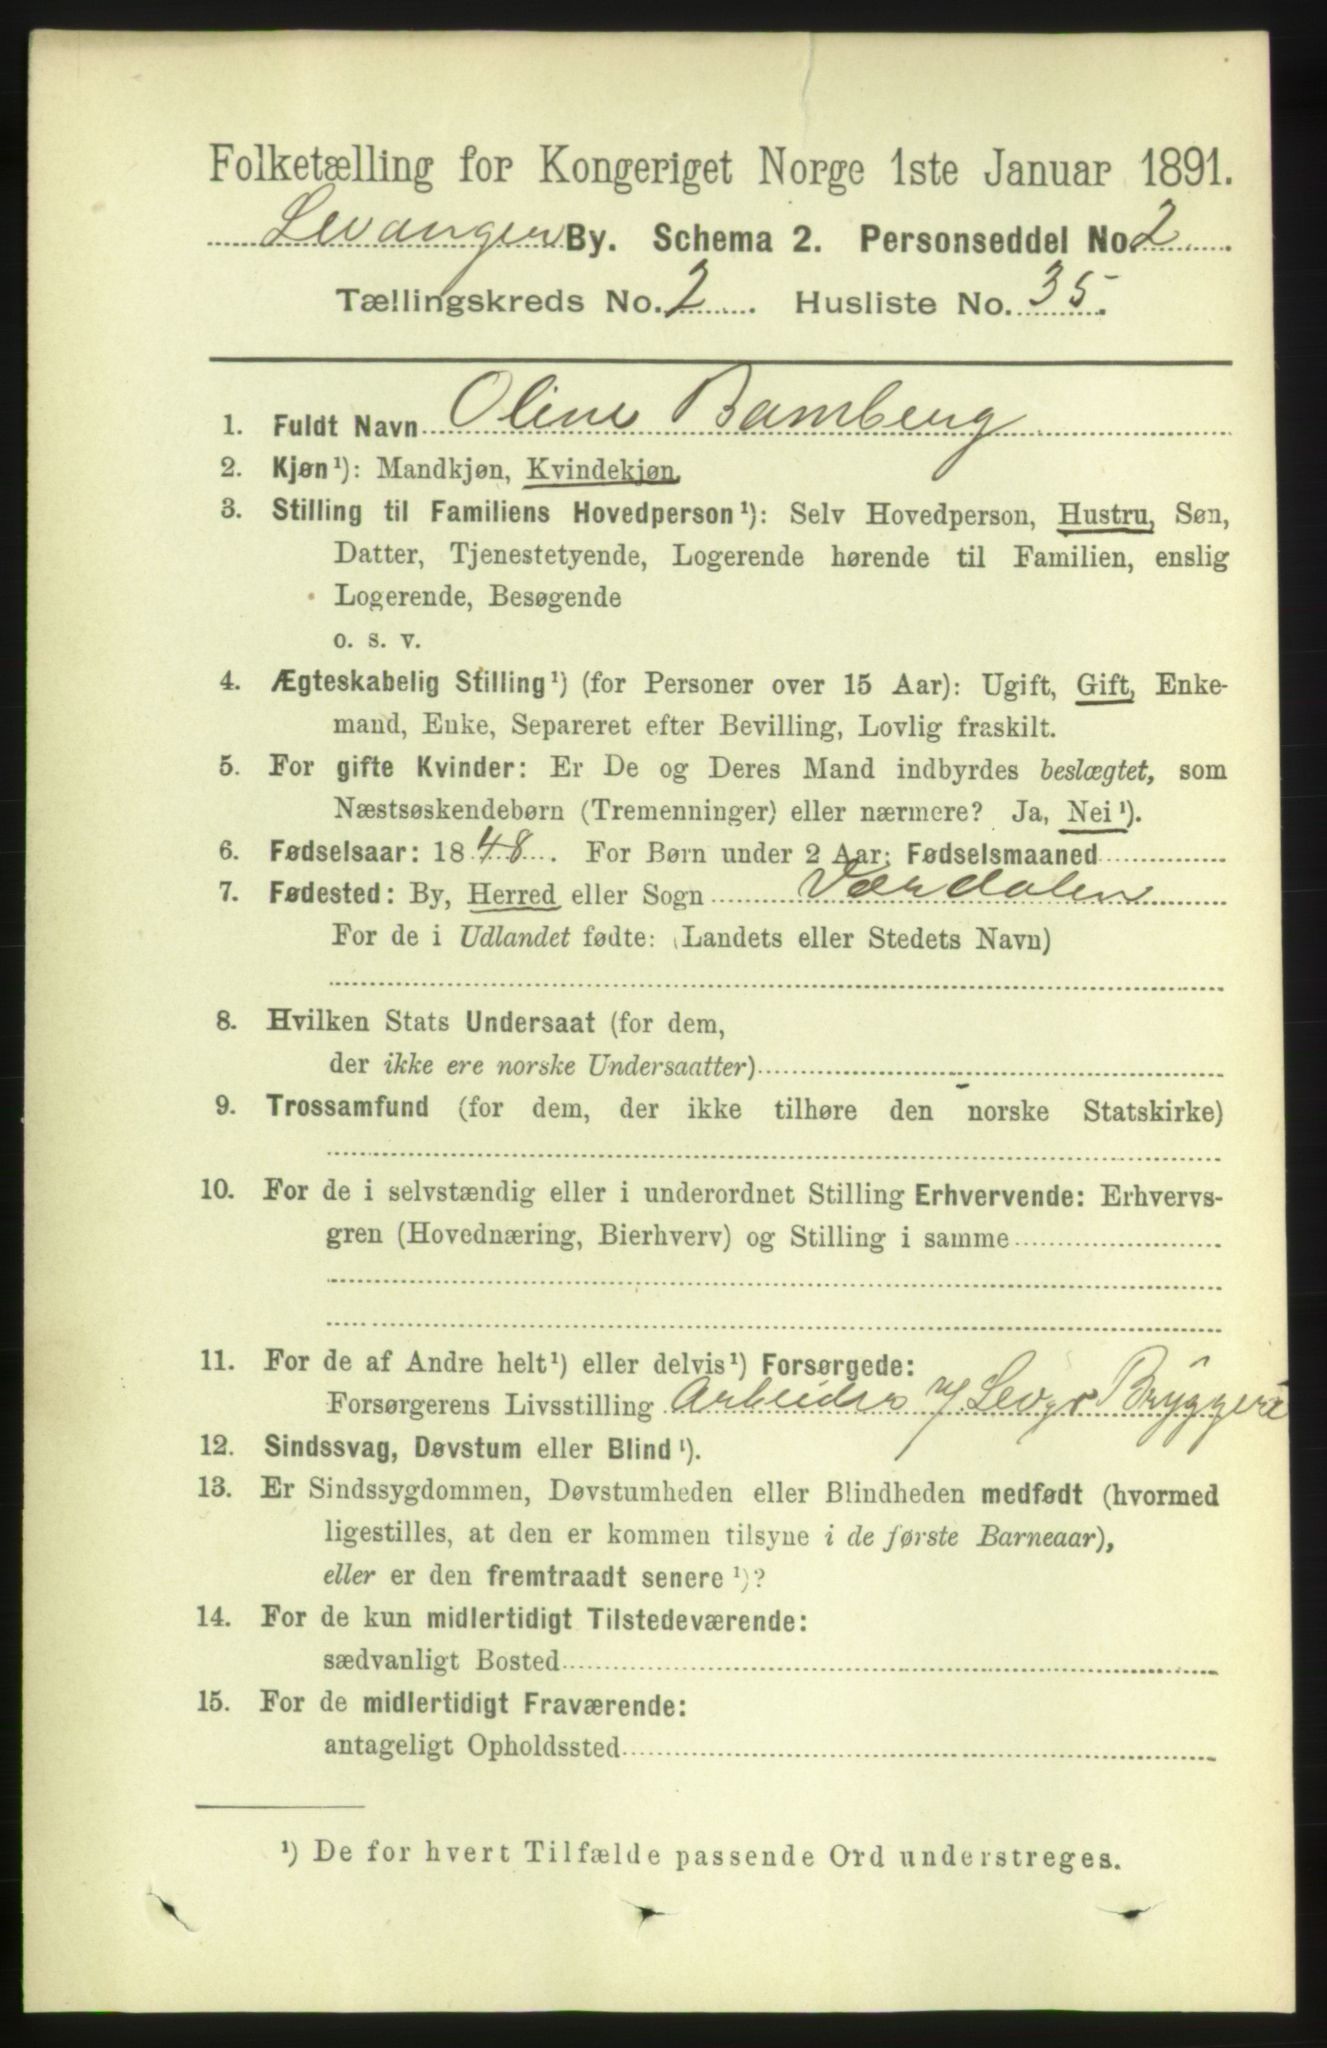 Folketælling for Kongeriget Norge 1ste Januar 1891.
Levanger By. Schema 2. Personseddel No. 2
Tællingskreds No. 2. Husliste No. 35.
1. Fuldt Navn Oline Bamberg
2. Kjøn¹): Mandkjøn, Kvindekjøn.
3. Stilling til Familiens Hovedperson¹): Selv Hovedperson, Hustru, Søn,
Datter, Tjenestetyende, Logerende hørende til Familien, enslig
Logerende, Besøgende
o. s. v.
4. Ægteskabelig Stilling¹) (for Personer over 15 Aar): Ugift, Gift, Enke-
mand, Enke, Separeret efter Bevilling, Lovlig fraskilt.
5. For gifte Kvinder: Er De og Deres Mand indbyrdes beslægtet, som
Næstsøskendebørn (Tremenninger) eller nærmere? Ja, Nei¹).
6. Fødselsaar: 1848. For Børn under 2 Aar: Fødselsmaaned
7. Fødested: By, Herred eller Sogn Værdalen
For de i Udlandet fødte: (Landets eller Stedets Navn)
8. Hvilken Stats Undersaat (for dem,
der ikke ere norske Undersaatter)
9. Trossamfund (for dem, der ikke tilhøre den norske Statskirke)
10. For de i selvstændig eller i underordnet Stilling Erhvervende: Erhvervs-
gren (Hovednæring, Bierhverv) og Stilling i samme
11. For de af Andre helt¹) eller delvis¹) Forsørgede:
Forsørgerens Livsstilling Arbeider v/ Levgr Bryggeri
12. Sindssvag, Døvstum eller Blind¹).
13. Er Sindssygdommen, Døvstumheden eller Blindheden medfødt (hvormed
ligestilles, at den er kommen tilsyne i de første Barneaar),
eller er den fremtraadt senere¹)?
14. For de kun midlertidigt Tilstedeværende:
sædvanligt Bosted
15. For de midlertidigt Fraværende:
antageligt Opholdssted
¹) De for hvert Tilfælde passende Ord understreges.